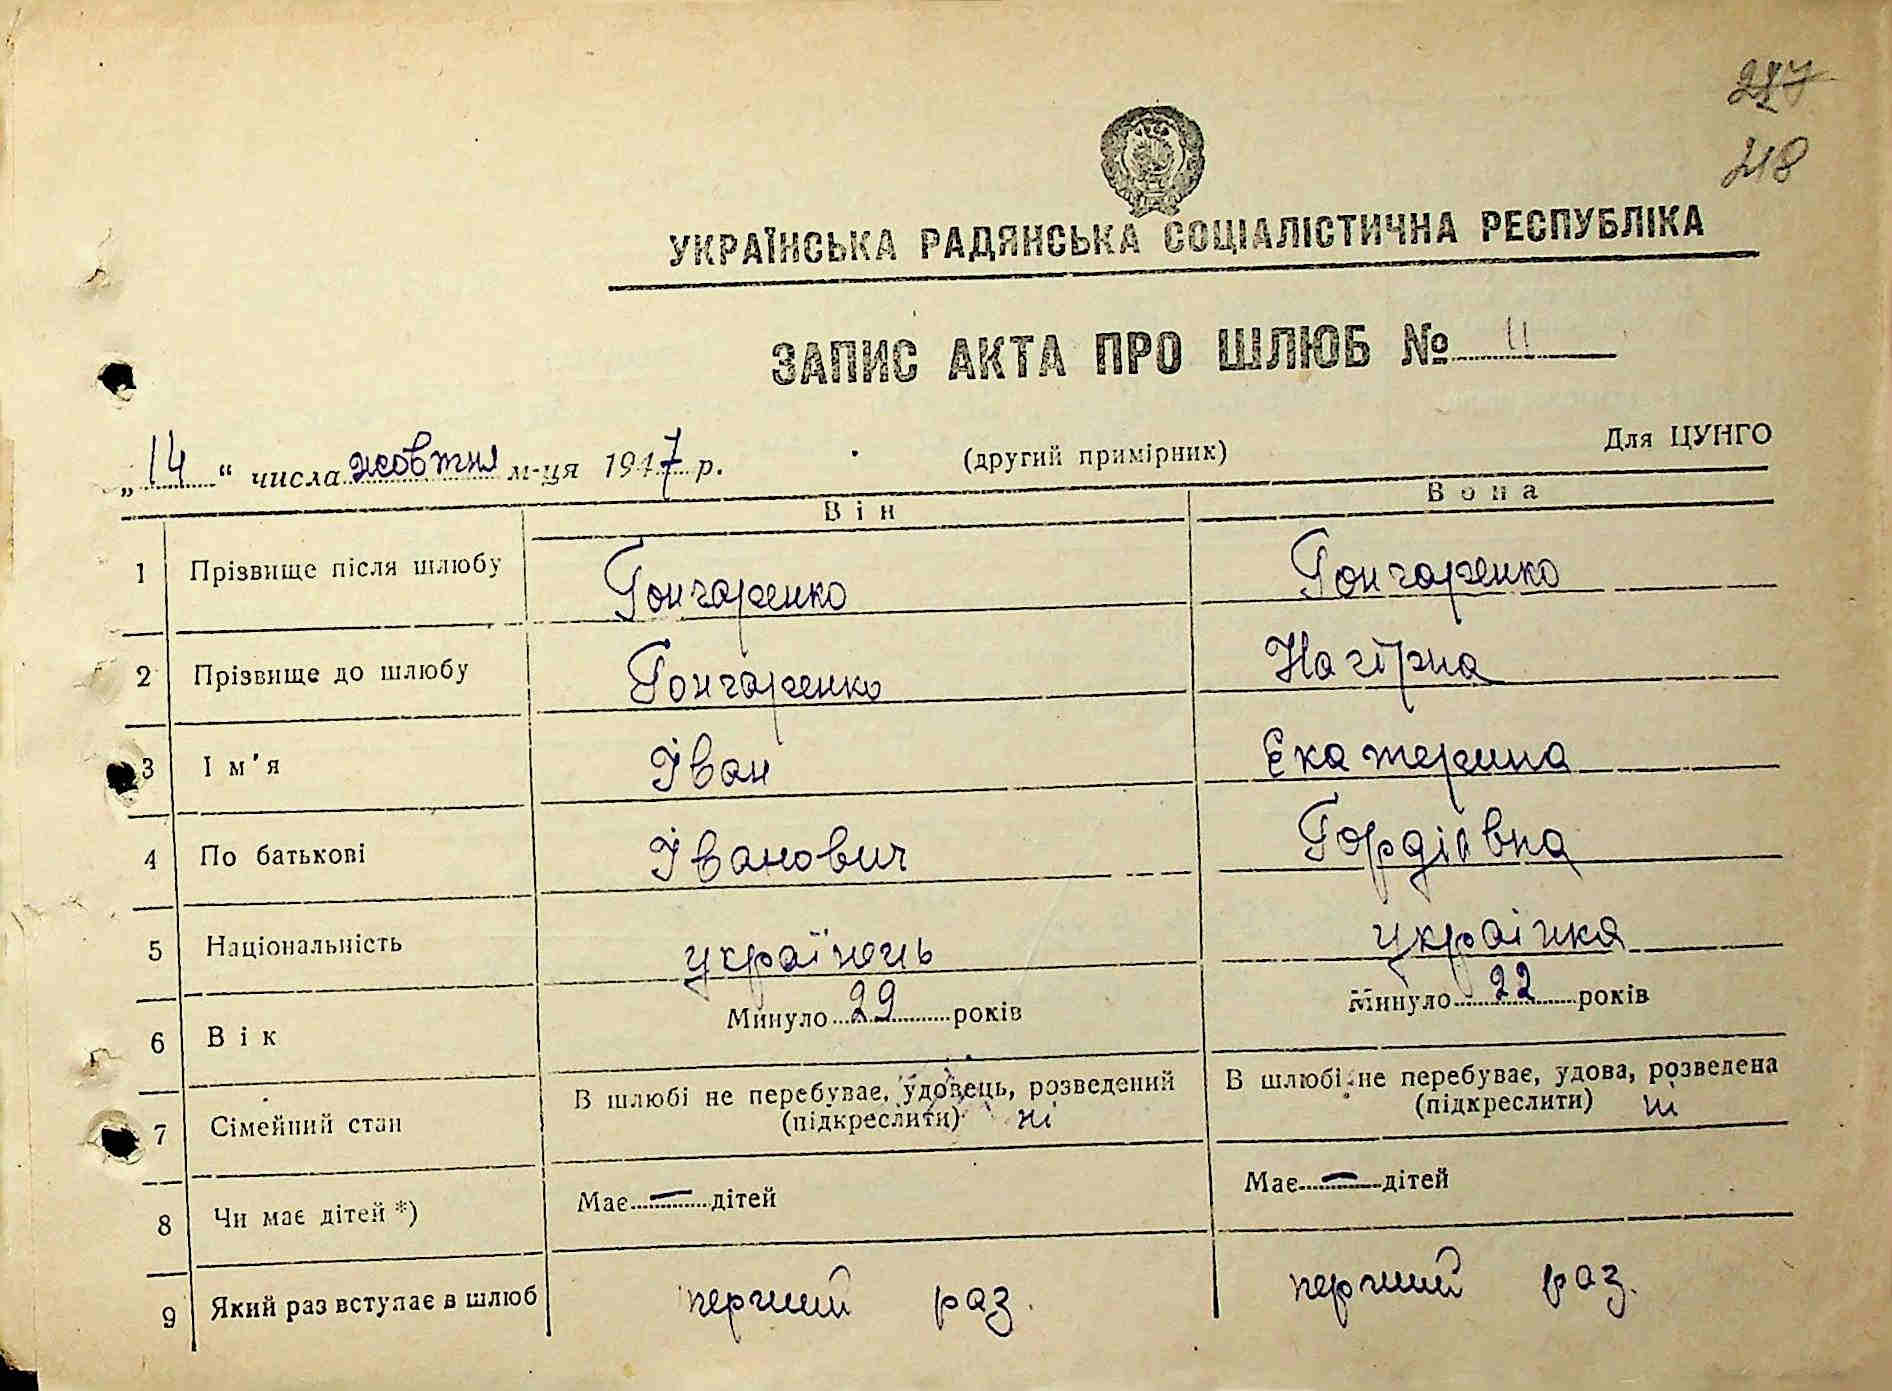 217
218
УКРАЇНСЬКА РАДЯНСЬКА СОЦІАЛІСТИЧНА РЕСПУБЛІКА
ЗАПИС АКТА ПРО ШЛЮБ № 11
„14“ числа жовтня м-ця 1947 р. (другий примірник) Для ЦУНГО
Він Вона
1 Прізвище після шлюбу Гончаренко Гончаренко
2 Прізвище до шлюбу Гончаренко Нагірна
3 Ім'я Іван Екатерина
4 По батькові Іванович Гордіївна
5 Національність українець українка
6 Вік Минуло 29 років Минуло 22 років
7 Сімейний стан В шлюбі не перебуває, удовець, розведений (підкреслити) ні В шлюбі не перебуває, удова, розведена (підкреслити) ні
8 Чи має дітей *) Має — дітей Має — дітей
9 Який раз вступає в шлюб перший раз. перший раз.